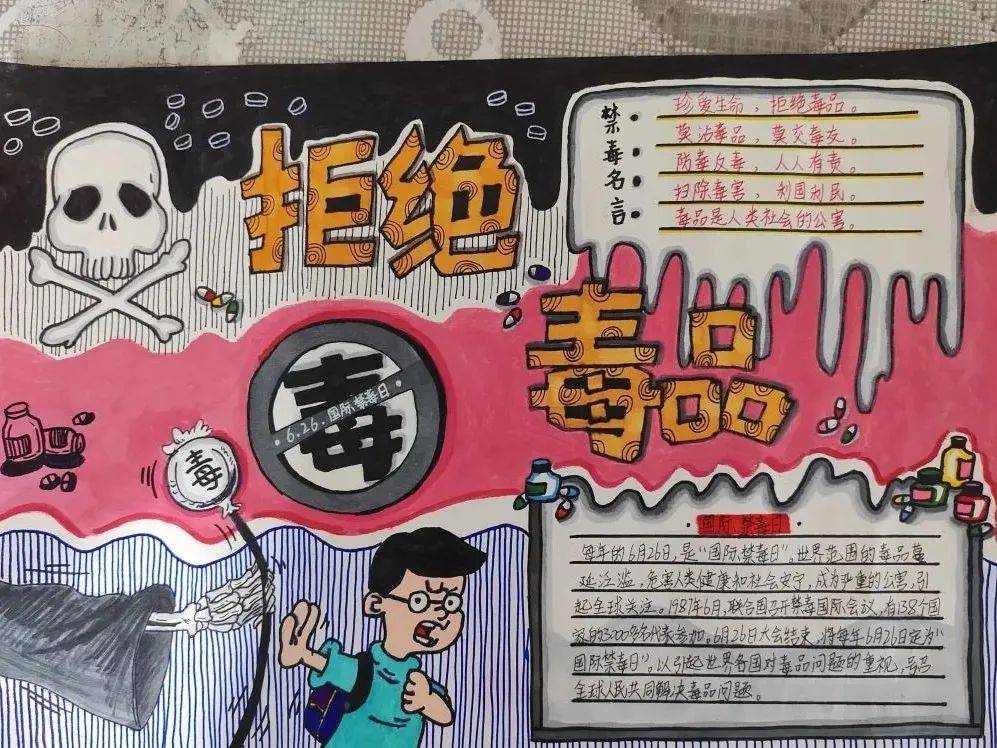 拒绝
毒品
禁毒名言
珍爱生命，拒绝毒品。
莫沾毒品，莫交毒友。
防毒反毒，人人有责。
扫除毒害，利国利民。
毒品是人类社会的公害。
毒
·6.26.国际禁毒日·
毒
·国际禁毒日·
每年的6月26日，是“国际禁毒日”。世界范围的毒品蔓
延泛滥，危害人类健康和社会安宁，成为严重的公害，引
起全球关注。1987年6月，联合国召开禁毒国际会议，有138个国
家的3000多名代表参加。6月26日大会结束，将每年6月26日定为“
国际禁毒日”。以引起世界各国对毒品问题的重视，号召
全球人民共同解决毒品问题。